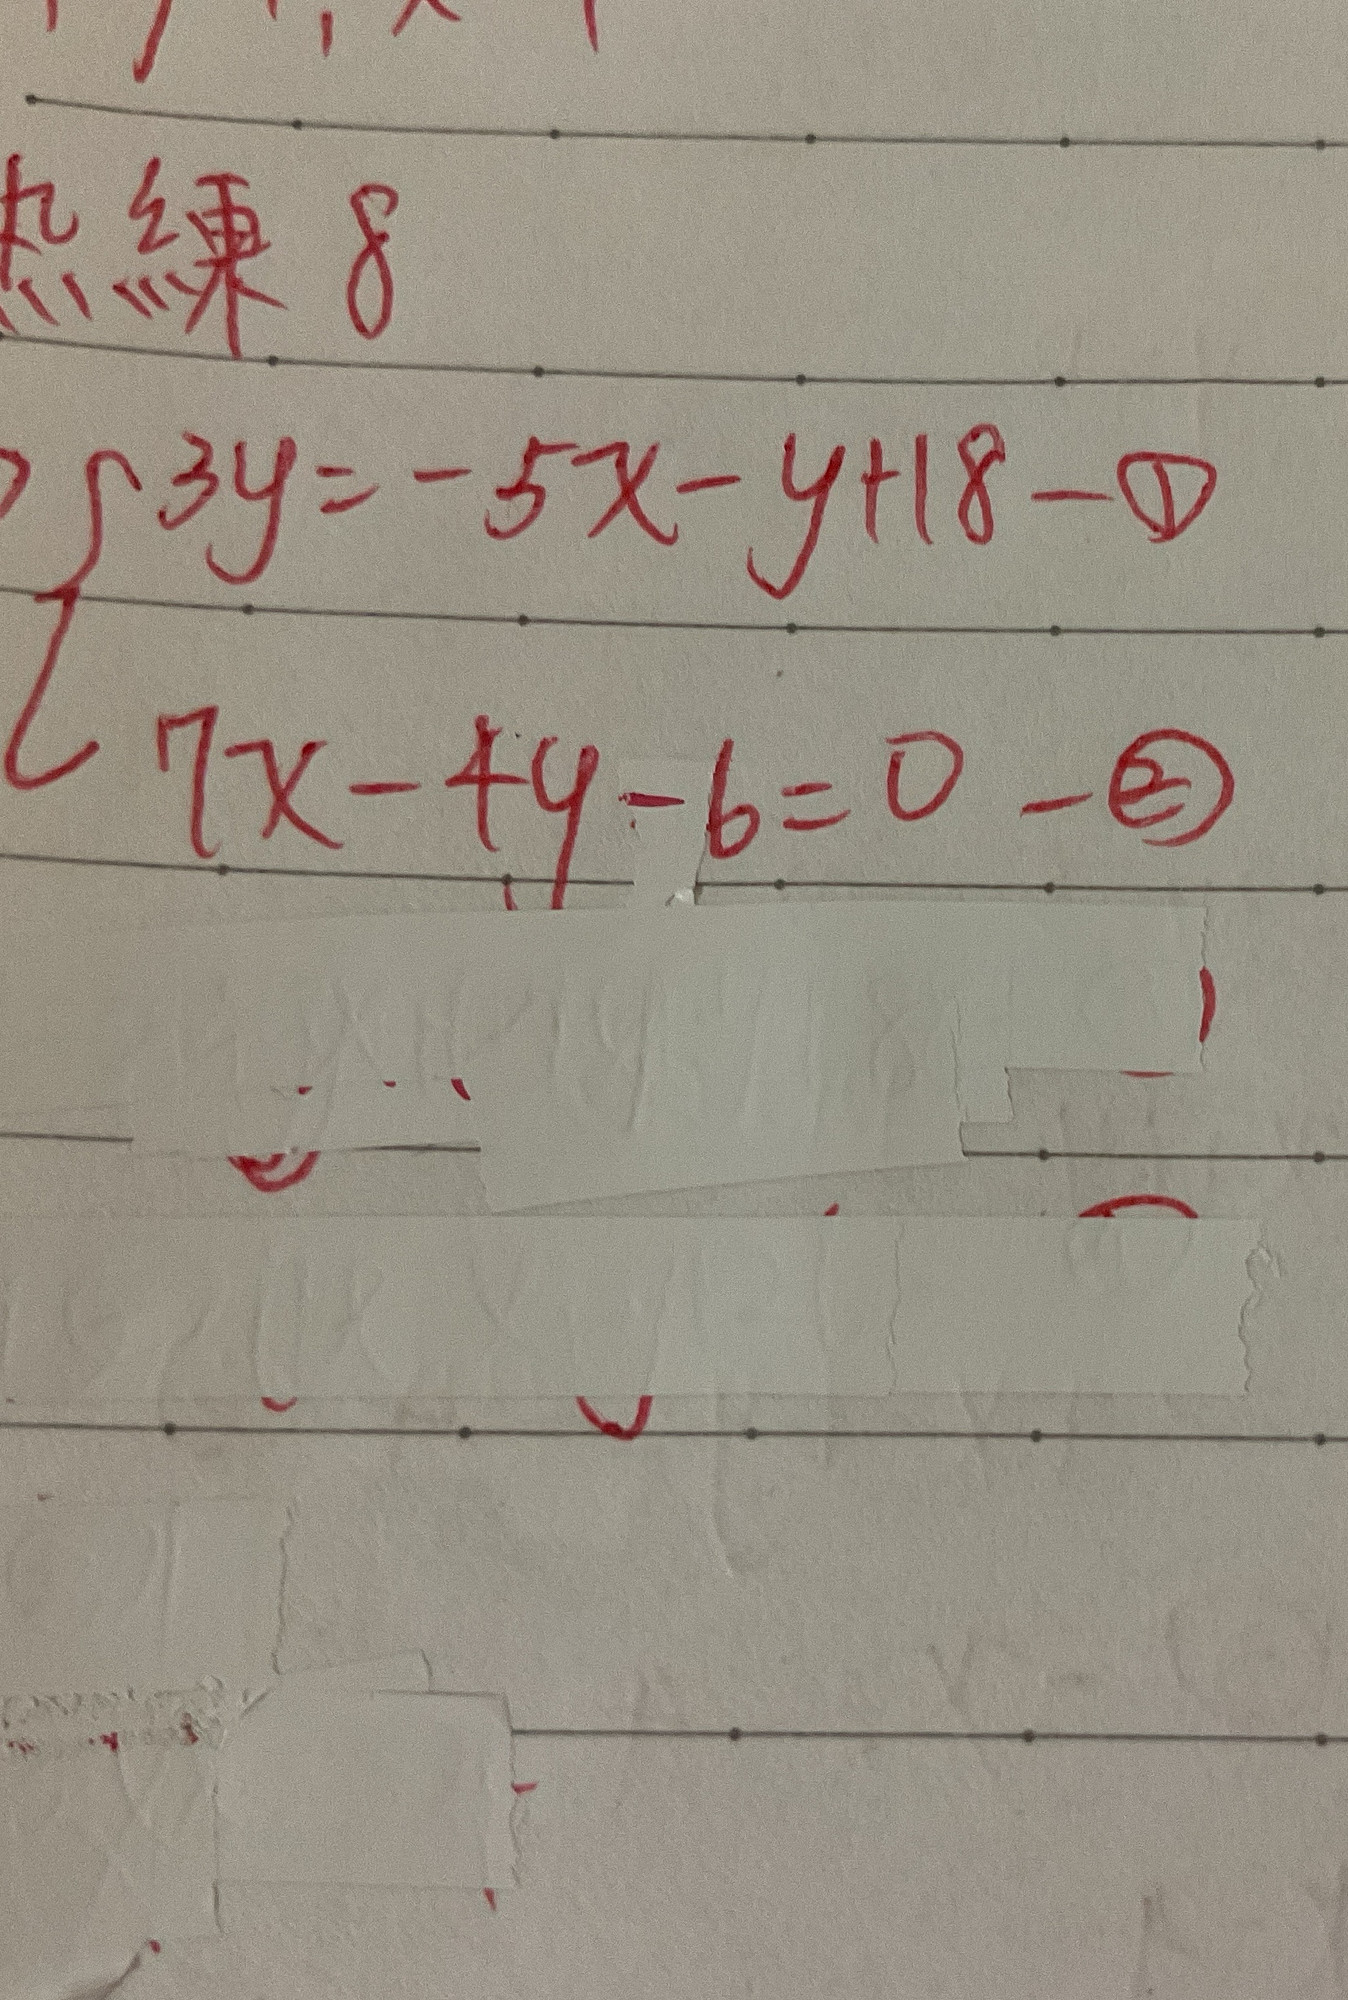 熱練 8
3y=-5x-y+18-①
7x-4y-6=0-②